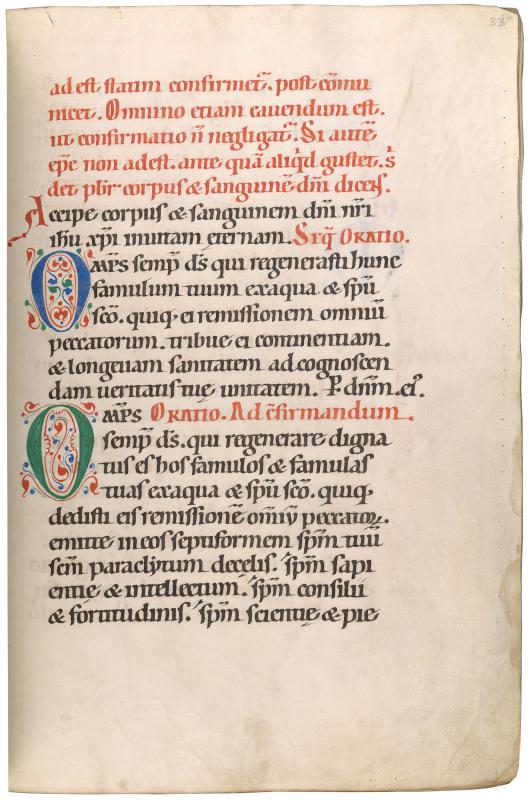 53
ad est statim confirmet̃. post cōmu
nicet. Omnino etiam cauendum est.
ut confirmatio ñ negligat̃. Si autē
ep̄c non adest. ante quā aliq̇d gustet. s̄
det pbr̄ corpus & sanguinē dn̄i dicens.
Accipe corpus & sanguinem dn̄i nr̄i
ihu xp̄i inuitam eternam. Seq̄ Oratio.
Omp̄s semp̄ ds̄ qui regenerasti hunc
famulum tuum exaqua & sp̄u
sc̄o. quiq; ei remissionem omniū
peccatorum. tribue ei continentiam.
& longeuam sanitatem ad cognoscen
dam ueritatis tuę unitatem. P. dn̄m. ei᷒.
Omp̄s Oratio. Ad c̄firmandum.
semp̄ ds̄. qui regenerare digna
tus es hos famulos & famulas
tuas exaqua & sp̄u sc̄o. quiq;
dedisti eis remissionē om̄iū peccatoꝝ.
emitte in eos septiformem sp̄m tuū
sc̄m paraclytum decelis. sp̄m sapi
entię & intellectum. sp̄m consilii
& fortitudinis. sp̄m scientię & pie